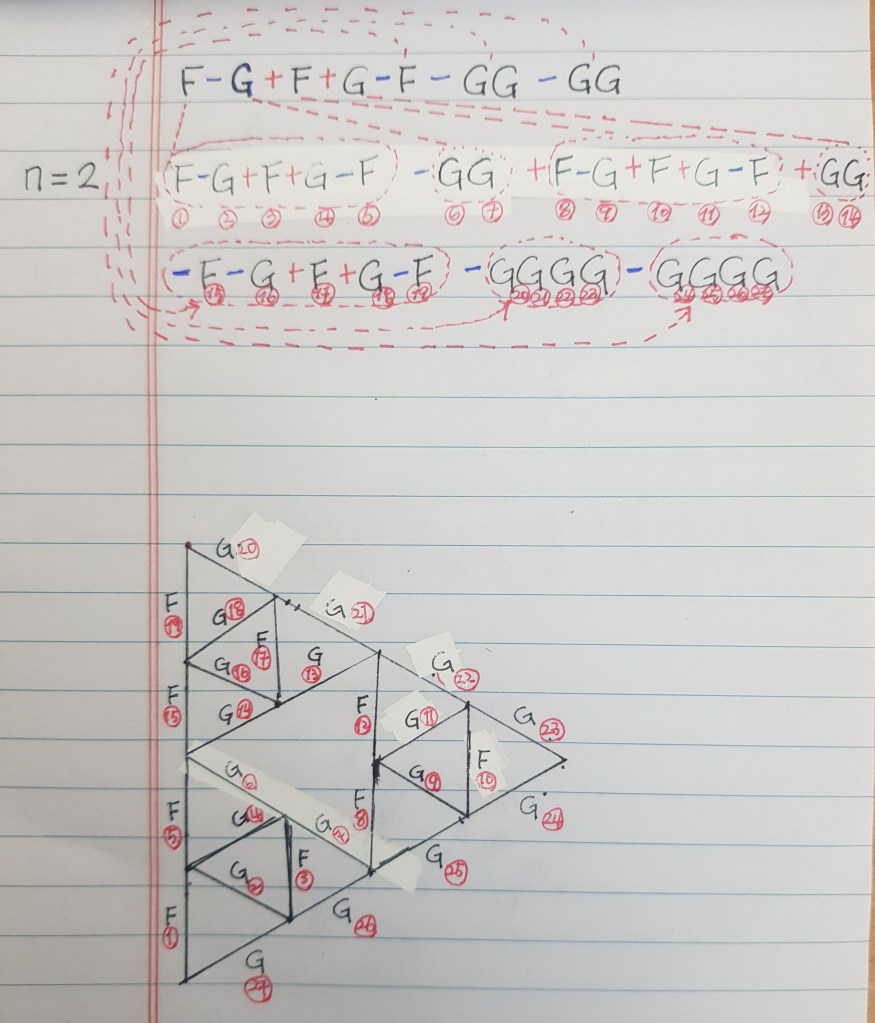 F-G+F+G-F-GG-GG
n=2 F-G+F+G-F -GG +F-G+F+G-F +GG
① ② ③ ④ ⑤ ⑥ ⑦ ⑧ ⑨ ⑩ ⑪ ⑫ ⑬ ⑭
-F-G+F+G-F -GGGG -GGGG
⑮ ⑯ ⑰ ⑱ ⑲ ⑳ ㉑ ㉒ ㉓ ㉔ ㉕ ㉖ ㉗
G ⑳
F ⑲
G ⑱
G ㉑
F ⑰
G ⑯
G ⑬
G ㉒
F ⑮
G ⑭
F ⑫
G ⑪
G ㉓
F ⑩
G ⑨
G ⑥
F ⑧
G ㉔
F ⑤
G ④
G ⑦
F ③
G ②
G ㉕
F ①
G ㉖
G ㉗